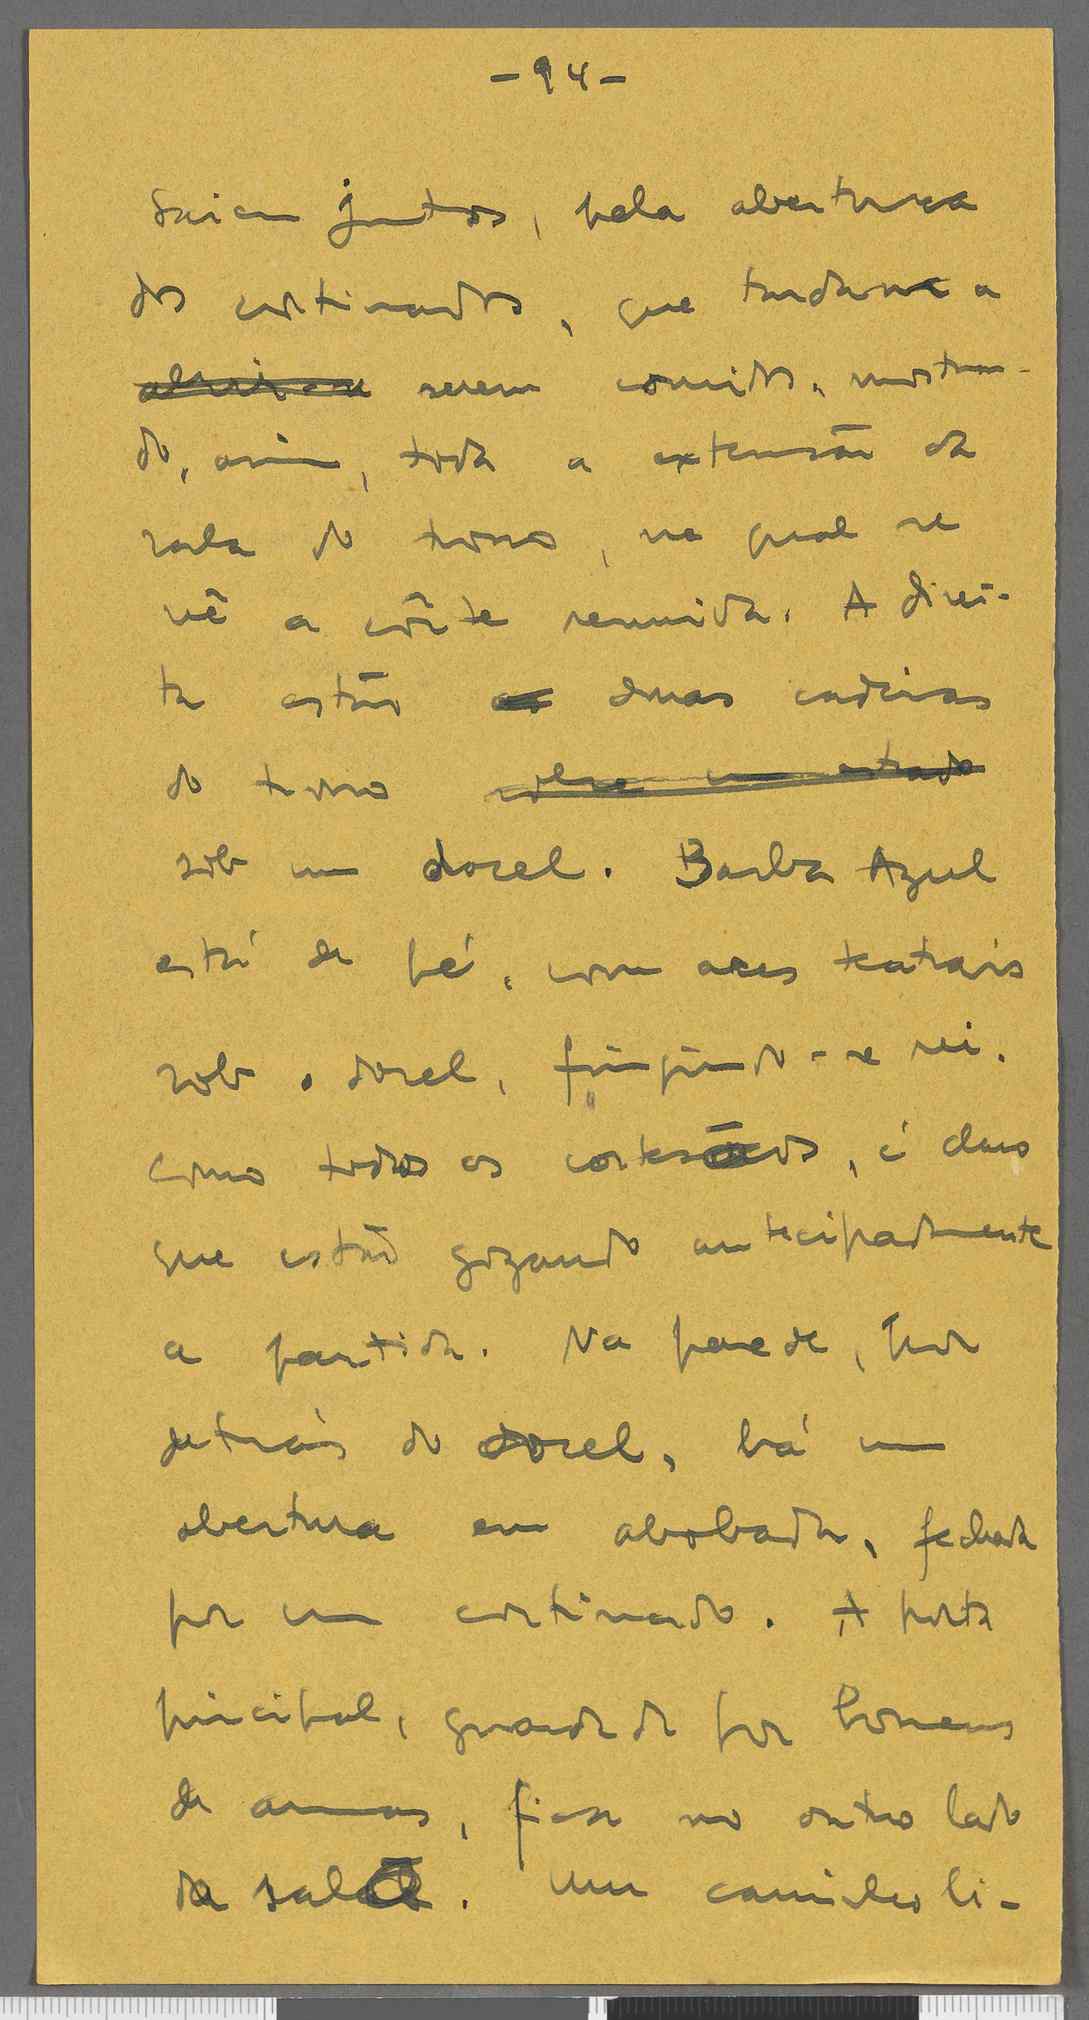 - 94 -
Saiem juntos, pela abertura
dos cortinados, que tardam a
serem corridos, mostran-
do, assim, toda a extensão da
sala do trono, na qual se
vê a côrte reunida. A direi-
ta estão duas cadeiras
do trono sobre um estrado
sob um dorcel. Barba Azul
está de pé, com ares teatrais
sob o dorcel, fingindo-se rei.
Como todos os cortesãos, é claro
que estão gozando antecipadamente
a partida. Na parede, por
detrás do dorcel, há um
abertura em abobada, fechada
por um cortinado. A porta
principal, guardada por homens
de armas, fica no outro lado
da sala. Um caminho li-